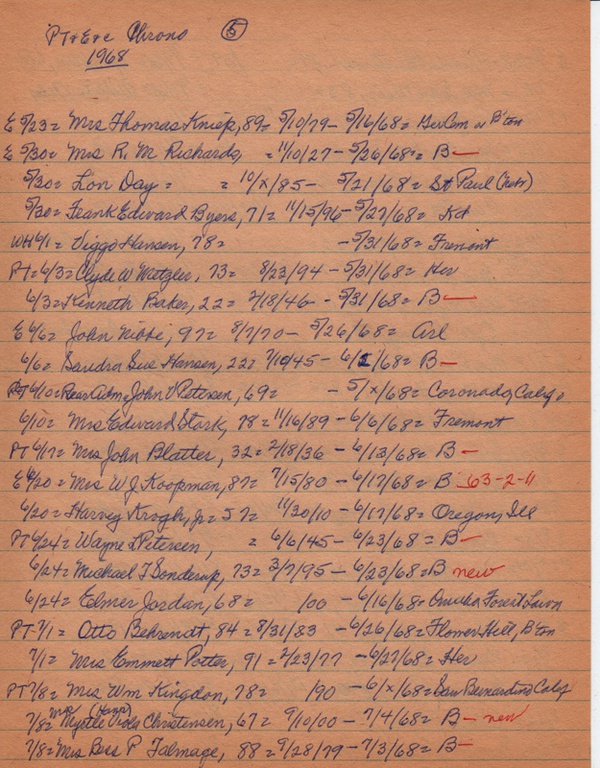 PT & E & c Chrono 5
1968
E 5/23 = Mrs Thomas Kniep, 89 = 5/10/79 - 5/16/68 = GerCem or B'ton
E 5/30 = Mrs R. M Richards, = 11/10/27 - 5/26/68 = B -
5/30 = Lon Day = = 10/x/85 - 5/21/68 = St Paul (Nebr)
5/30 = Frank Edward Byers, 71 = 11/15/96 - 5/27/68 = Kd
WH 6/1 = Viggo Hansen, 78 = - 5/31/68 = Fremont
PT = 6/3 = Clyde W Wetzler, 73 = 8/23/94 - 5/31/68 = Her
6/3 = Kenneth Baker, 22 = 2/18/46 - 5/31/68 = B -
E 6/6 = John 97 = 8/7/70 - 5/26/68 = Arl
6/6 = Sandra Sue Hansen, 22 = 7/10/45 - 6/1/68 = B -
PT 6/10 = Rear Adm = John V Petersen, 69 = - 5/x/68 = Coronado, Calif.
6/10 = Mrs Edward Stork, 78 = 11/16/89 - 6/6/68 = Fremont
PT 6/17 = Mrs John Blatter, 32 = 2/18/36 - 6/13/68 = B -
E 6/20 = Mrs W J Koopman, 87 = 7/15/80 - 6/17/68 = B 63-2-11
6/20 = Harvey Krogh, Jr = 57 = 11/30/10 - 6/17/68 = Oregon, Ill
PT 6/24 = Wayne L Petersen, = 6/6/45 - 6/23/68 = B -
6/24 = Michael T Sonderup, 73 = 3/7/95 - 6/23/68 = B new
6/24 = Elmer Jordan, 68 = /00 - 6/16/68 = Omaha Forest Lawn
PT - 7/1 = Otto Behrendt, 84 = 8/31/83 - 6/26/68 = Flower Hill, B'ton
7/1 = Mrs Emmett Potter, 91 = 2/23/77 - 6/27/68 = Her
PT 7/8 = Mrs Wm Kingdon, 78 = /90 - 6/x/68 = San Bernardino Calif
7/8 = Mrs Myrtle Viola (Harp) Christensen, 67 = 9/10/00 - 7/4/68 = B - new
7/8 = Mrs Bess P Talmage, 88 = 9/28/79 - 7/3/68 = B -